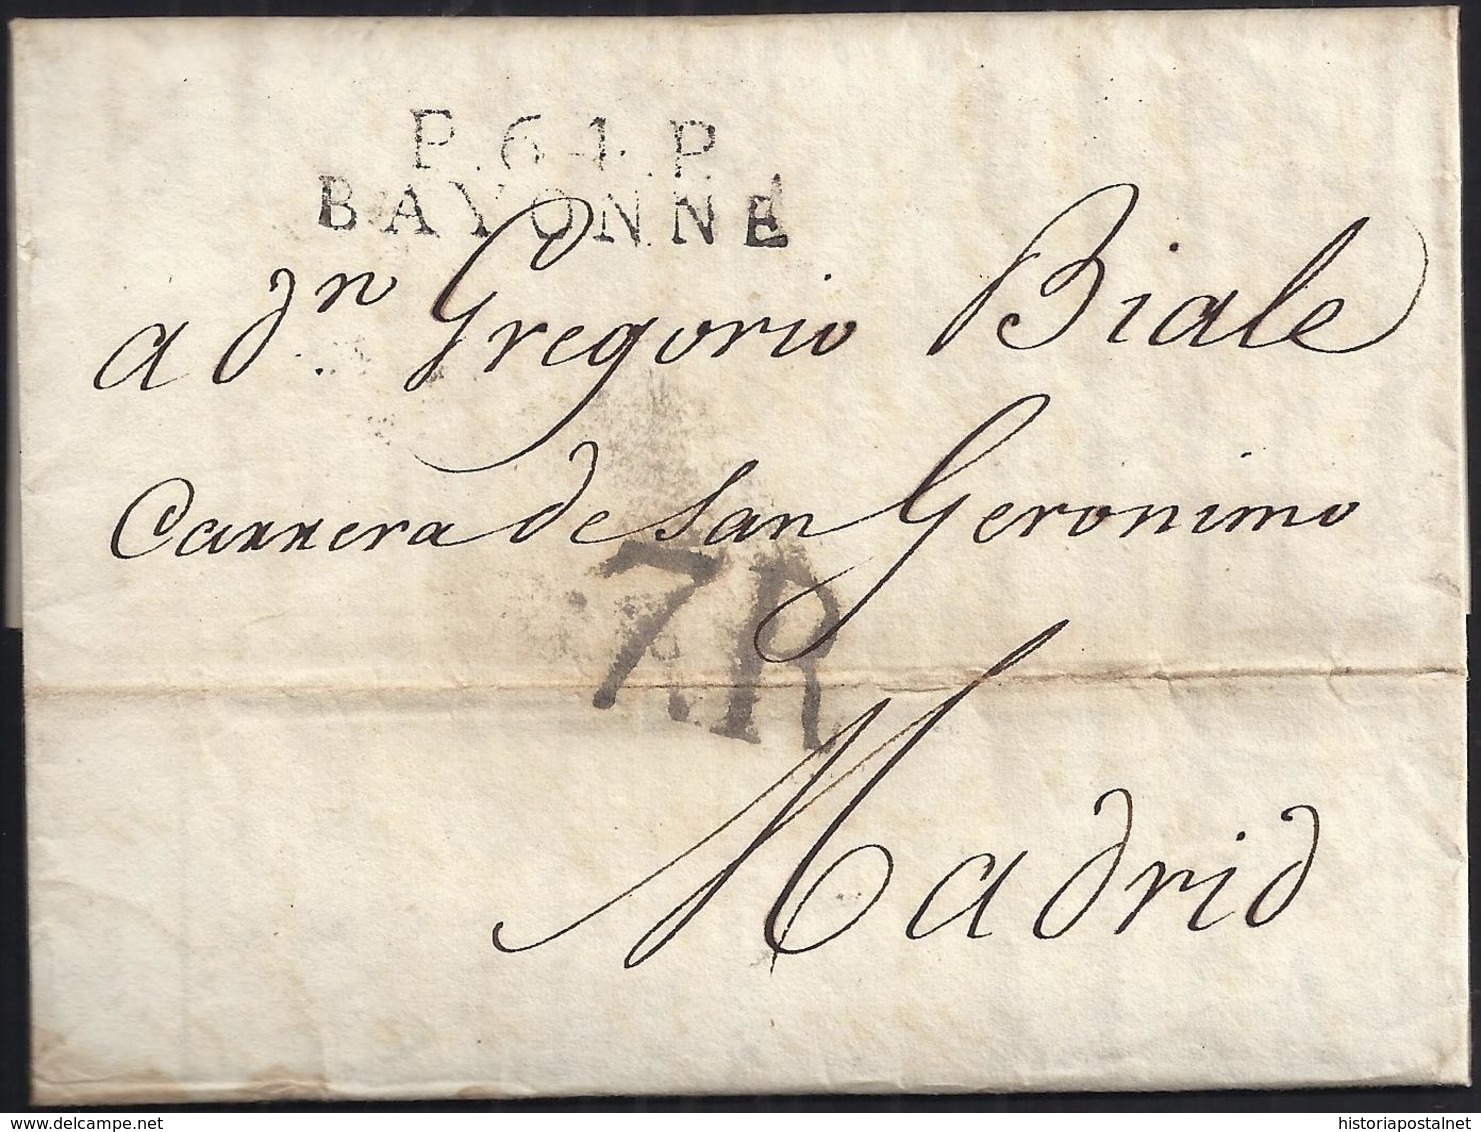 P.64.P.
BAYONNE
a dn Gregorio Biale
Carrera de San Geronimo
7.R
Madrid
delcampe.net
historiapostalnet